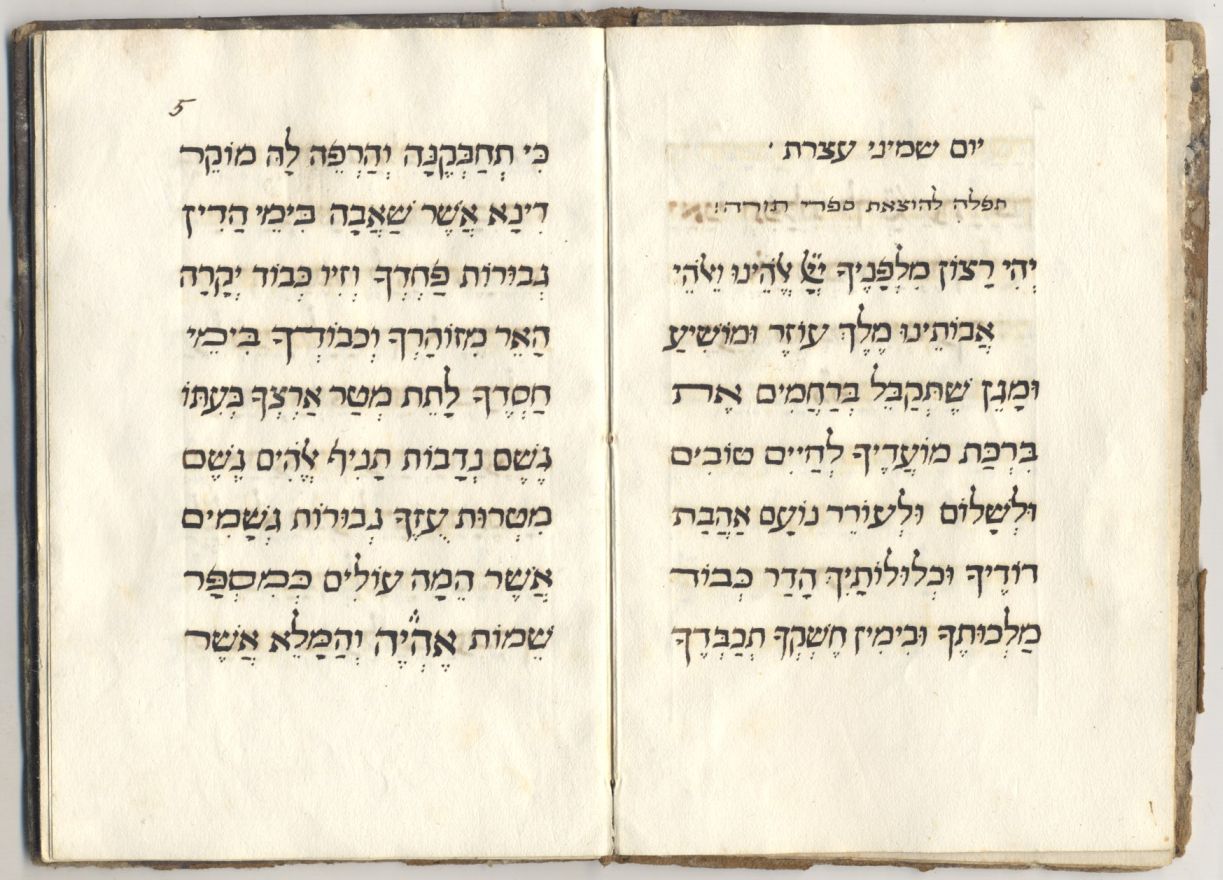 יום שמיני עצרת ׳
תפלה להוצאת ספרי תורה:
יְהִי רָצוֹן מִלְפָנֶיךָ אֱלֹהֵינוּ וֵאלֹהֵי
אֲבוֹתֵינוּ מֶלֶךְ עוֹזֵר וּמוֹשִׁיעַ
וּמָגֵן שֶׁתְּקַבֵּל בְּרַחֲמִים אֶת
בִּרְכַּת מוֹעֲדֶיךָ לְחַיִּים טוֹבִים
וּלְשָׁלוֹם וּלְעוֹרֵר נוֹעָם אַהֲבַת
דוֹדֶיךָ וּכְלוּלוֹתָיִךְ הָדַר כְּבוֹד
מַלְכוּתֶךָ וּבִימִין חֶשְׁקְךָ תְכַבְּדֶךָ
5
כִּי תְחַבְּקֶנָּה וְהַרְפֵּה לָהּ מוֹקֵר
דִינָא אֲשֶׁר שָׁאֲבָה בִּימֵי הַדִין
גְבוּרוֹת פַּחְדְךָ וְזִיו כְּבוֹד יְקָרָהּ
הָאֵר מִזוֹהָרְךָ וְכבוֹדְךָ בִּימֵי
חַסְדֶךָ לָתֵת מְטַר אַרְצְךָ בְּעִתּוֹ
גֶשֶׁם נְדָבוֹת תָנִיף אֱלֹהִים גֶשֶׁם
מִטְרוֹת עֻזְךָ גְבוּרוֹת גְשָׁמִים
אֲשֶׁר הֵמָה עוֹלִים כְּמִסְפָּר
שֵׁמוֹת אֶהְיֶה וְהַמָּלֵא אֲשֶׁר